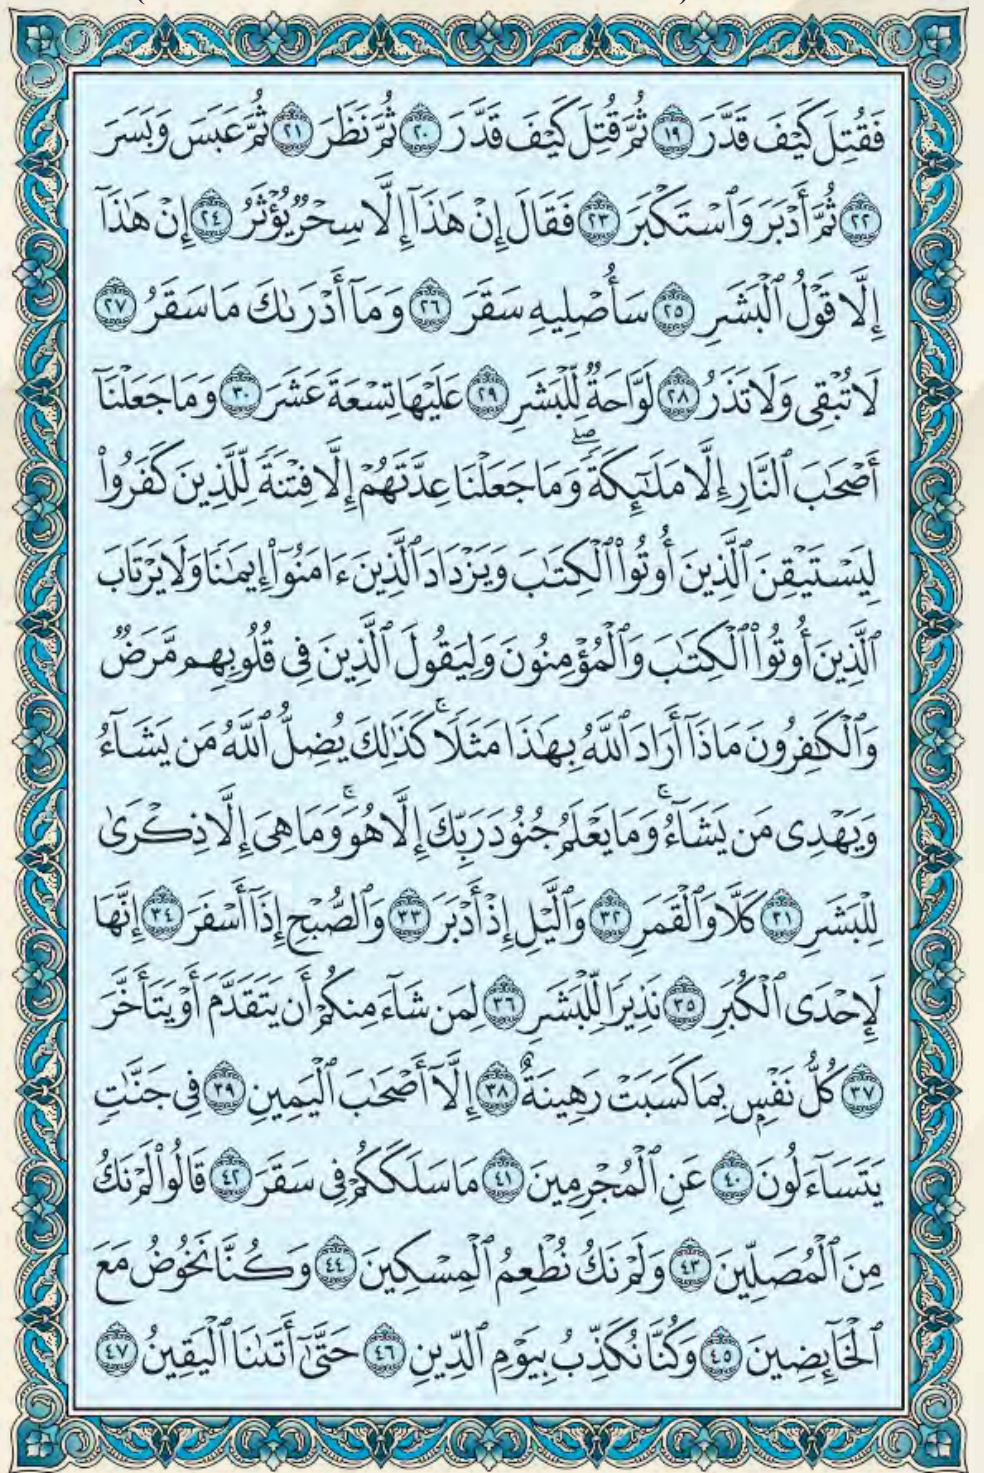 فَقُتِلَ كَيْفَ قَدَّرَ ١٩ ثُمَّ قُتِلَ كَيْفَ قَدَّرَ ٢٠ ثُمَّ نَظَرَ ٢١ ثُمَّ عَبَسَ وَبَسَرَ
٢٢ ثُمَّ أَدْبَرَ وَٱسْتَكْبَرَ ٢٣ فَقَالَ إِنْ هَٰذَآ إِلَّا سِحْرٌ يُؤْثَرُ ٢٤ إِنْ هَٰذَآ
إِلَّا قَوْلُ ٱلْبَشَرِ ٢٥ سَأُصْلِيهِ سَقَرَ ٢٦ وَمَآ أَدْرَىٰكَ مَا سَقَرُ ٢٧
لَا تُبْقِى وَلَا تَذَرُ ٢٨ لَوَّاحَةٌ لِّلْبَشَرِ ٢٩ عَلَيْهَا تِسْعَةَ عَشَرَ ٣٠ وَمَا جَعَلْنَآ
أَصْحَٰبَ ٱلنَّارِ إِلَّا مَلَٰٓئِكَةً ۖ وَمَا جَعَلْنَا عِدَّتَهُمْ إِلَّا فِتْنَةً لِّلَّذِينَ كَفَرُوا۟
لِيَسْتَيْقِنَ ٱلَّذِينَ أُوتُوا۟ ٱلْكِتَٰبَ وَيَزْدَادَ ٱلَّذِينَ ءَامَنُوٓا۟ إِيمَٰنًا وَلَا يَرْتَابَ
ٱلَّذِينَ أُوتُوا۟ ٱلْكِتَٰبَ وَٱلْمُؤْمِنُونَ وَلِيَقُولَ ٱلَّذِينَ فِى قُلُوبِهِم مَّرَضٌ
وَٱلْكَٰفِرُونَ مَاذَآ أَرَادَ ٱللَّهُ بِهَٰذَا مَثَلًا ۚ كَذَٰلِكَ يُضِلُّ ٱللَّهُ مَن يَشَآءُ
وَيَهْدِى مَن يَشَآءُ ۚ وَمَا يَعْلَمُ جُنُودَ رَبِّكَ إِلَّا هُوَ ۚ وَمَا هِىَ إِلَّا ذِكْرَىٰ
لِلْبَشَرِ ٣١ كَلَّا وَٱلْقَمَرِ ٣٢ وَٱلَّيْلِ إِذْ أَدْبَرَ ٣٣ وَٱلصُّبْحِ إِذَآ أَسْفَرَ ٣٤ إِنَّهَا
لَإِحْدَى ٱلْكُبَرِ ٣٥ نَذِيرًا لِّلْبَشَرِ ٣٦ لِمَن شَآءَ مِنكُمْ أَن يَتَقَدَّمَ أَوْ يَتَأَخَّرَ
٣٧ كُلُّ نَفْسٍۭ بِمَا كَسَبَتْ رَهِينَةٌ ٣٨ إِلَّآ أَصْحَٰبَ ٱلْيَمِينِ ٣٩ فِى جَنَّٰتٍ
يَتَسَآءَلُونَ ٤٠ عَنِ ٱلْمُجْرِمِينَ ٤١ مَا سَلَكَكُمْ فِى سَقَرَ ٤٢ قَالُوا۟ لَمْ نَكُ
مِنَ ٱلْمُصَلِّينَ ٤٣ وَلَمْ نَكُ نُطْعِمُ ٱلْمِسْكِينَ ٤٤ وَكُنَّا نَخُوضُ مَعَ
ٱلْخَآئِضِينَ ٤٥ وَكُنَّا نُكَذِّبُ بِيَوْمِ ٱلدِّينِ ٤٦ حَتَّىٰٓ أَتَىٰنَا ٱلْيَقِينُ ٤٧